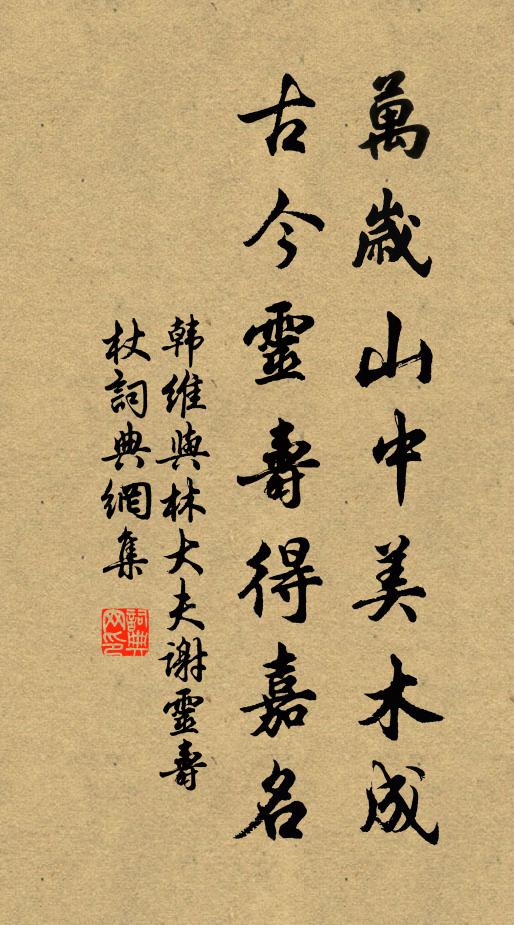 萬歲山中美木成
古今靈壽得嘉名
韩維與林大夫謝靈壽
杖詞典網集
詞典
网印